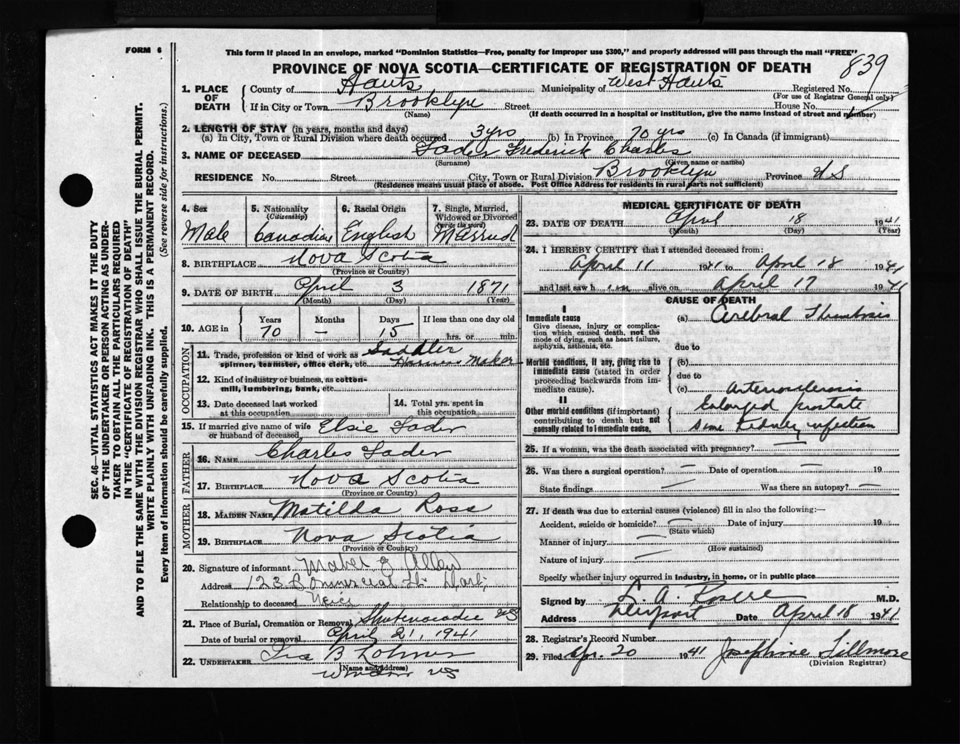 FORM 6
This form if placed in an envelope, marked "Dominion Statistics—Free, penalty for improper use $300," and properly addressed will pass through the mail "FREE"
PROVINCE OF NOVA SCOTIA—CERTIFICATE OF REGISTRATION OF DEATH
839
SEC. 46—VITAL STATISTICS ACT MAKES IT THE DUTY
OF THE UNDERTAKER OR PERSON ACTING AS UNDER-
TAKER TO OBTAIN ALL THE PARTICULARS REQUIRED
IN THE "CERTIFICATE OF REGISTRATION OF DEATH"
AND TO FILE THE SAME WITH THE DIVISION REGISTRAR WHO SHALL ISSUE THE BURIAL PERMIT.
WRITE PLAINLY WITH UNFADING INK. THIS IS A PERMANENT RECORD.
Every item of Information should be carefully supplied. (See reverse side for instructions.)
1. PLACE OF DEATH County of Hants Municipality of West Hants Registered No.
(For use of Registrar General only)
If in City or Town Brooklyn Street House No.
(Name) (If death occurred in a hospital or institution, give the name instead of street and number)
2. LENGTH OF STAY (in years, months and days)
(a) In City, Town or Rural Division where death occurred 3 yrs (b) In Province 70 yrs (c) In Canada (if immigrant)
3. NAME OF DECEASED Sader Frederick Charles
(Surname) (Given name or names)
RESIDENCE No. Street City, Town or Rural Division Brooklyn Province N S
(Residence means usual place of abode. Post Office Address for residents in rural parts not sufficient)
4. Sex Male
5. Nationality (Citizenship) Canadian
6. Racial Origin English
7. Single, Married, Widowed or Divorced (write the word) Married
8. BIRTHPLACE Nova Scotia
(Province or Country)
9. DATE OF BIRTH April 3 1871
(Month) (Day) (Year)
10. AGE in Years 70 Months — Days 15 If less than one day old hrs. or min.
OCCUPATION
11. Trade, profession or kind of work as spinner, teamster, office clerk, etc. Saddler Harness Maker
12. Kind of industry or business, as cotton-mill, lumbering, bank, etc.
13. Date deceased last worked at this occupation
14. Total yrs. spent in this occupation
15. If married give name of wife or husband of deceased Elsie Sader
FATHER
16. NAME Charles Sader
17. BIRTHPLACE Nova Scotia
(Province or Country)
MOTHER
18. MAIDEN NAME Matilda Ross
19. BIRTHPLACE Nova Scotia
(Province or Country)
20. Signature of informant Mabel Allen
Address 123 Commercial St. Dart.
Relationship to deceased Neice
21. Place of Burial, Cremation or Removal Shubenacadie NS
Date of burial or removal April 21, 1941
22. UNDERTAKER Ira B
(Name and Address)
Windsor NS
MEDICAL CERTIFICATE OF DEATH
23. DATE OF DEATH April 18 1941
(Month) (Day) (Year)
24. I HEREBY CERTIFY that I attended deceased from:
April 11 1941 to April 18 1941
and last saw him alive on April 17 1941
CAUSE OF DEATH
I
Immediate cause
Give disease, injury or complication which caused death, not the mode of dying, such as heart failure, asphyxia, asthenia, etc.
(a) Cerebral Thrombosis
due to
Morbid conditions, if any, giving rise to immediate cause (stated in order proceeding backwards from immediate cause).
(b)
due to
(c) Arteriosclerosis
II
Other morbid conditions (if important) contributing to death but not causally related to immediate cause.
Enlarged prostate
Some Kidney infection
25. If a woman, was the death associated with pregnancy? —
26. Was there a surgical operation? — Date of operation — 19
State findings — Was there an autopsy? —
27. If death was due to external causes (violence) fill in also the following:—
Accident, suicide or homicide? — Date of injury 19
(State which)
Manner of injury —
(How sustained)
Nature of injury —
Specify whether injury occurred in industry, in home, or in public place
Signed by M.D.
Address Newport Date April 18 1941
28. Registrar's Record Number
29. Filed Apr. 20 1941 Josephine Fillmore
(Division Registrar)